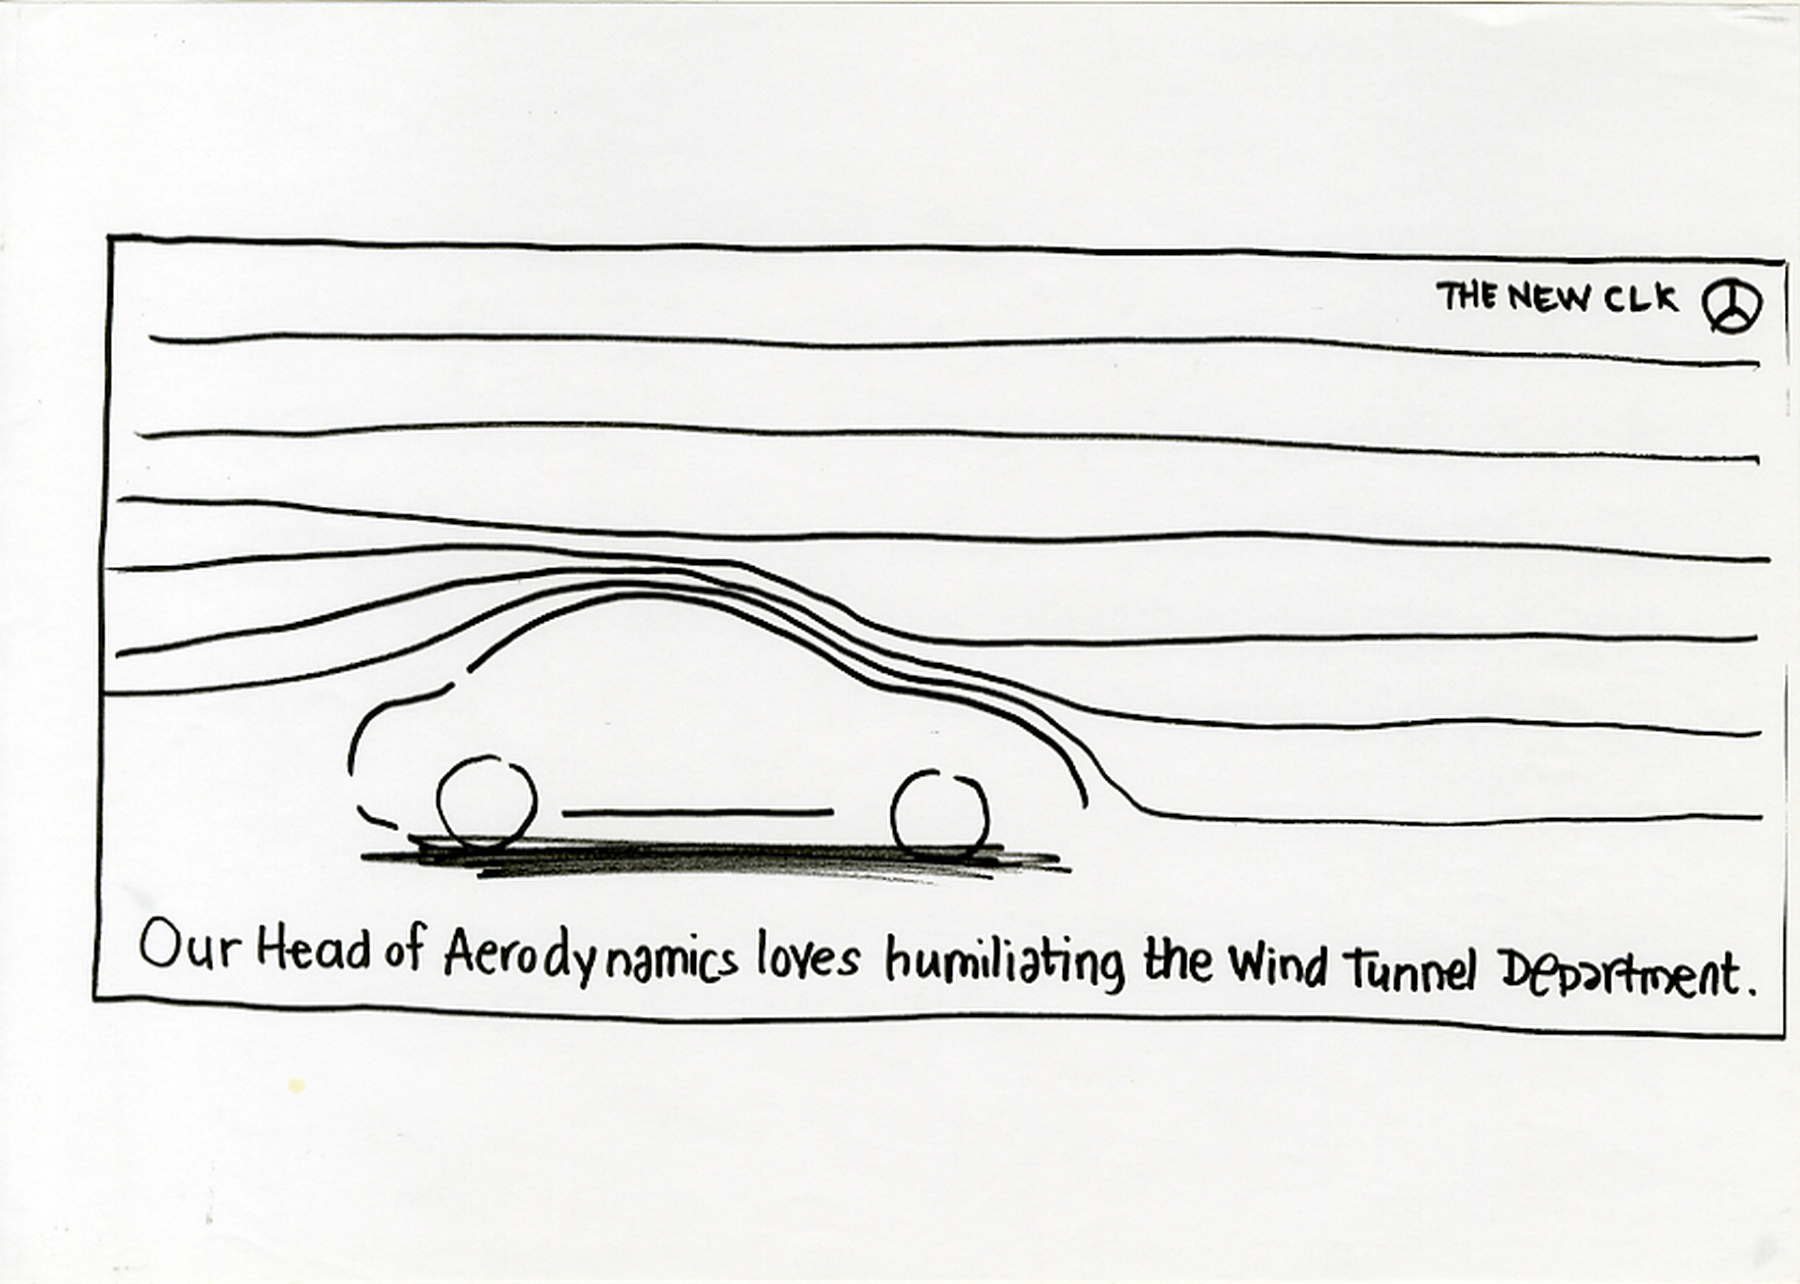 THE NEW CLK
Our Head of Aerodynamics loves humiliating the Wind Tunnel Department.